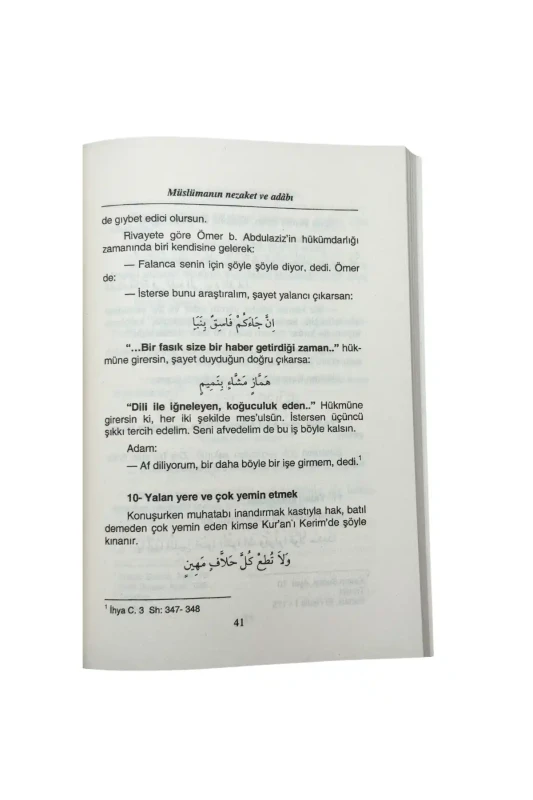 Müslümanın nezaket ve adâbı
de gıybet edici olursun.
Rivayete göre Ömer b. Abdulaziz'in hükümdarlığı
zamanında biri kendisine gelerek:
— Falanca senin için şöyle şöyle diyor, dedi. Ömer
de:
— İsterse bunu araştıralım, şayet yalancı çıkarsan:
اِنْ جَاءَكُمْ فَاسِقٌ بِنَبَأٍ
"...Bir fasık size bir haber getirdiği zaman.." hük-
müne girersin, şayet duyduğun doğru çıkarsa:
هَمَّازٍ مَشَّاءٍ بِنَمِيمٍ
"Dili ile iğneleyen, koğuculuk eden.." Hükmüne
girersin ki, her iki şekilde mes'ulsün. İstersen üçüncü
şıkkı tercih edelim. Seni afvedelim de bu iş böyle kalsın.
Adam:
— Af diliyorum, bir daha böyle bir işe girmem, dedi.¹
10- Yalan yere ve çok yemin etmek
Konuşurken muhatabı inandırmak kastıyla hak, batıl
demeden çok yemin eden kimse Kur'an'ı Kerim'de şöyle
kınanır.
وَلَا تُطِعْ كُلَّ حَلَّافٍ مَهِينٍ
¹ İhya C. 3 Sh: 347- 348
41